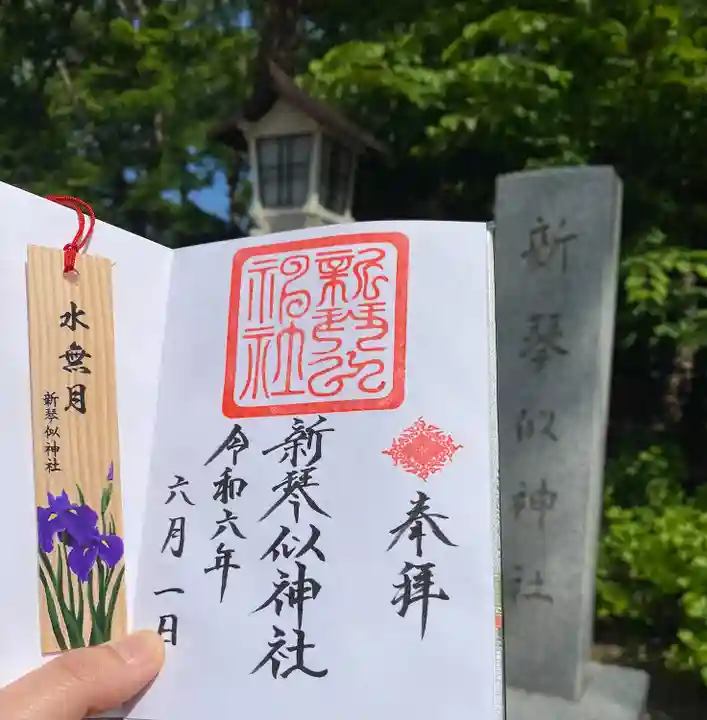 新琴似神社
奉拝
新琴似
神社
新琴似神社
令和六年
六月一日
水無月
新琴似神社